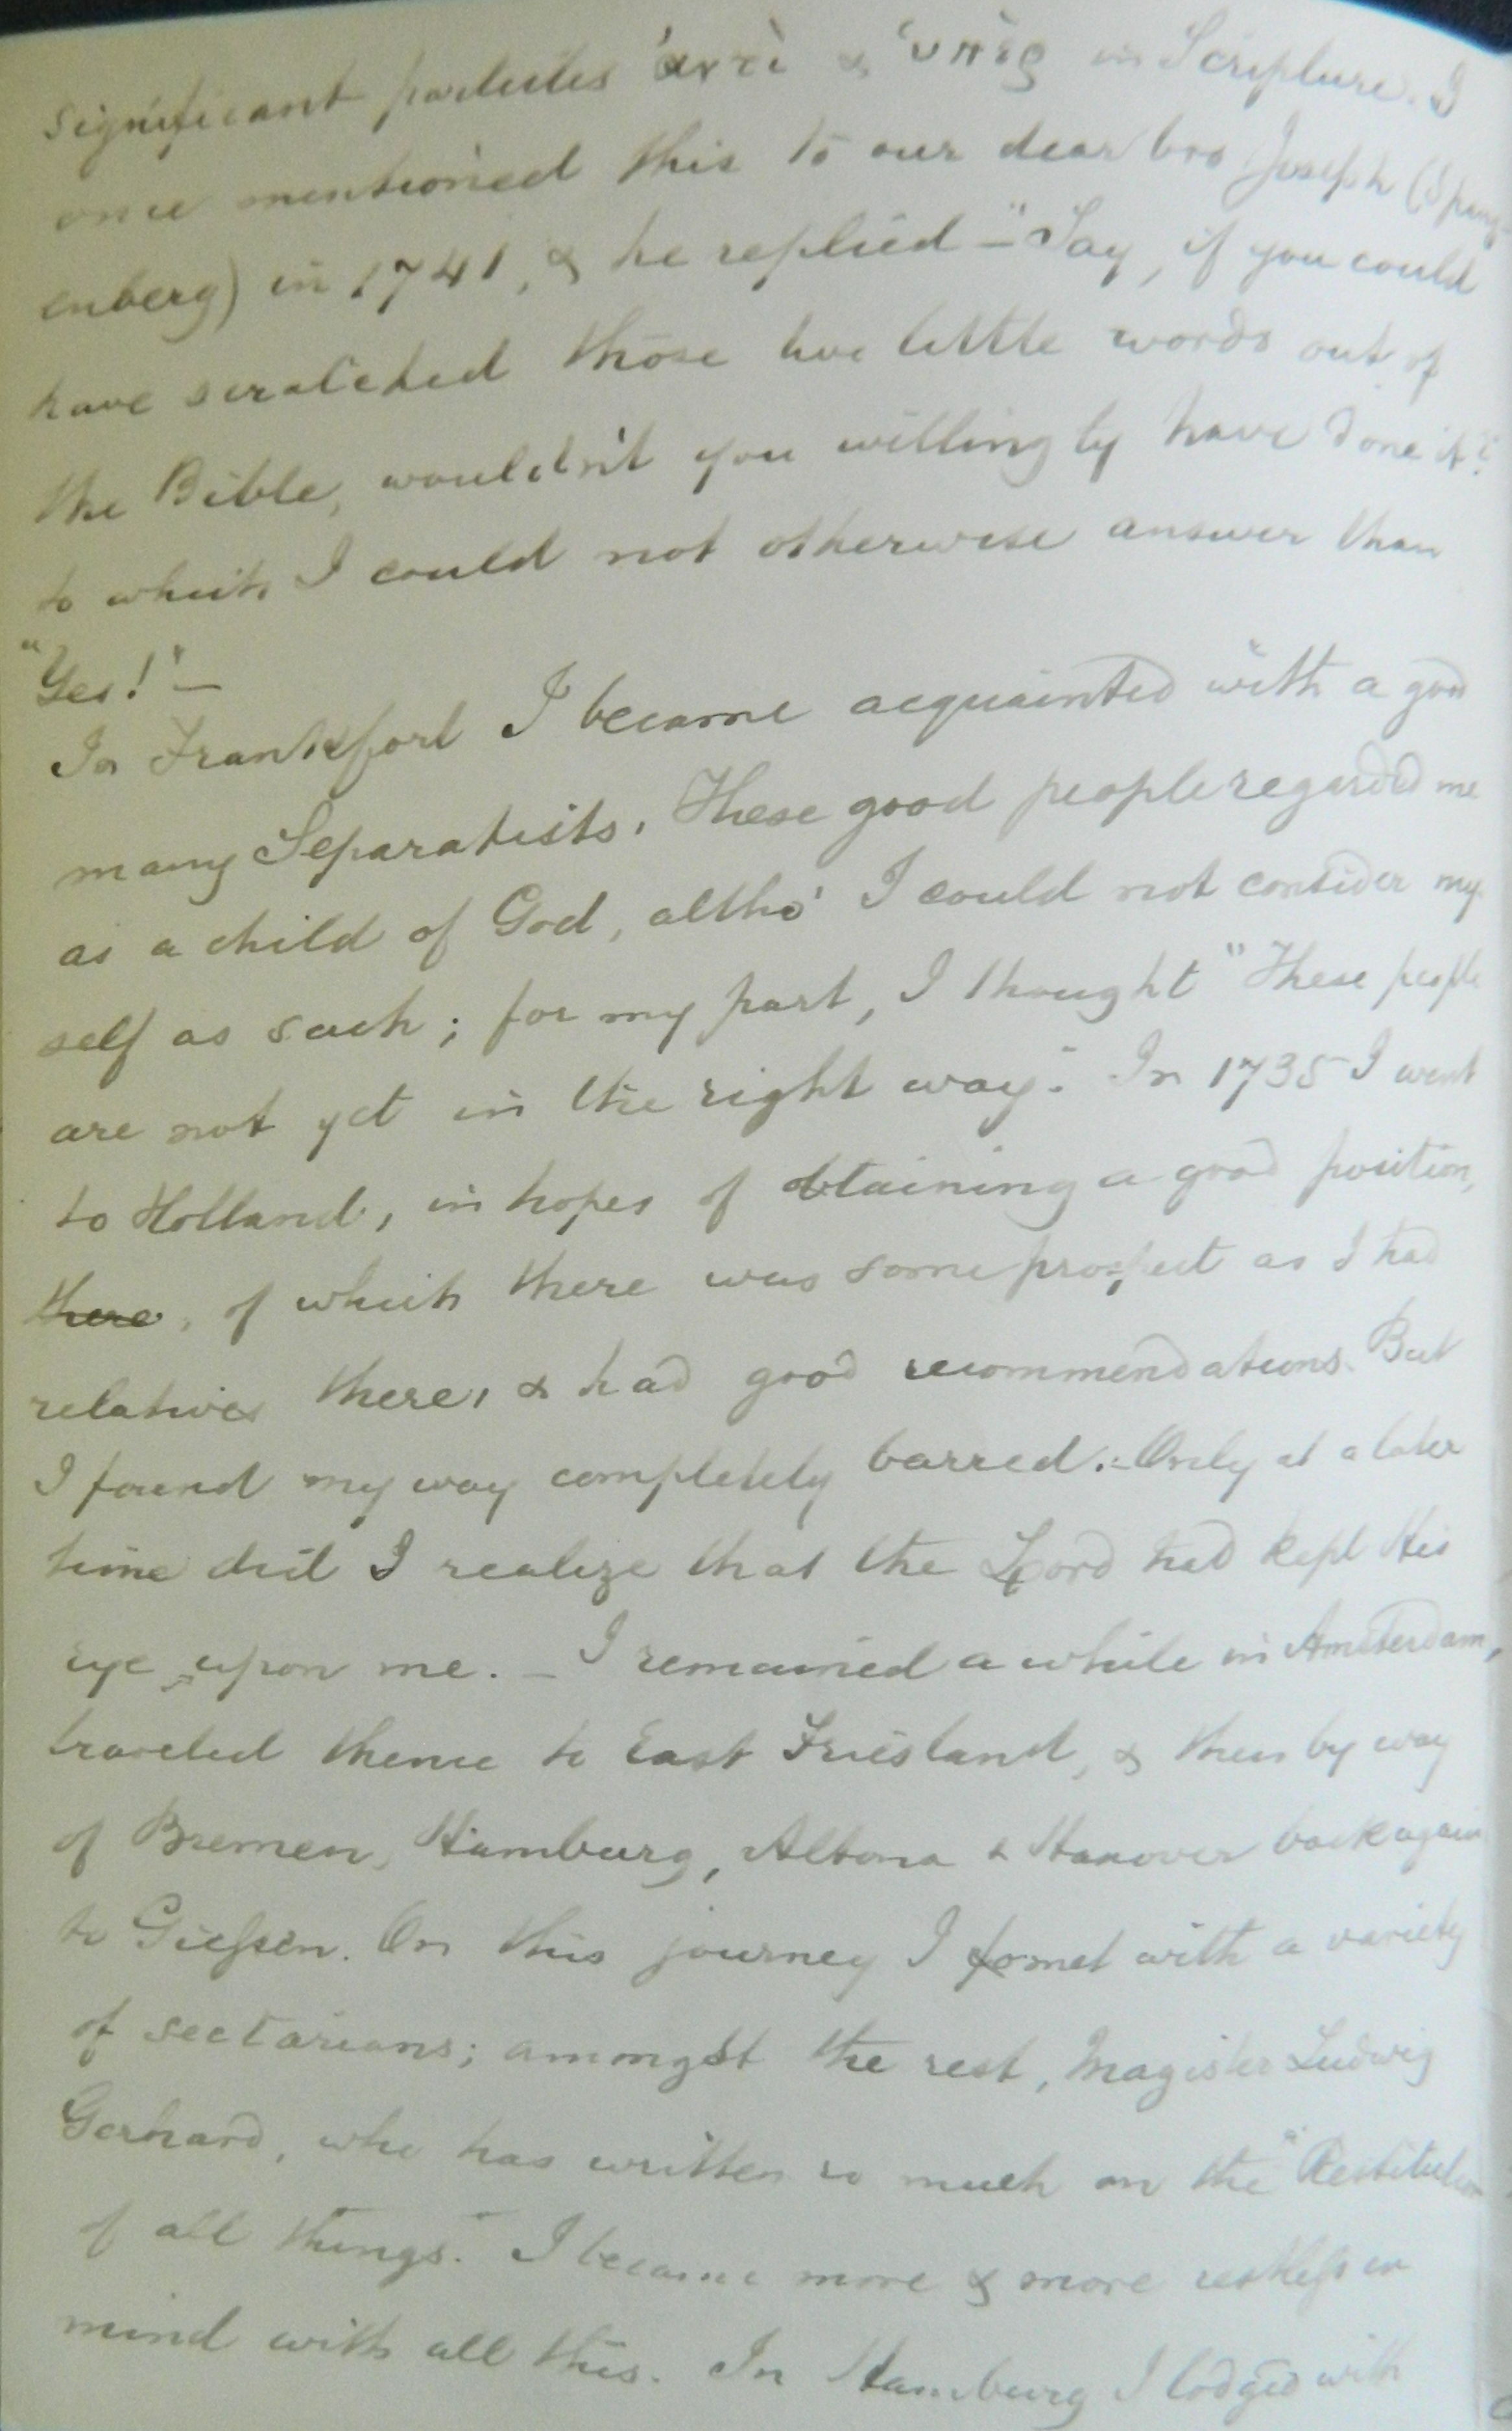 significant particles ἀντὶ & ὑπὲρ in Scripture. I
once mentioned this to our dear bro Joseph (Spang-
enberg) in 1741, & he replied – "Say, if you could
have scratched those two little words out of
the Bible, wouldn't you willingly have done it?"
to which I could not otherwise answer than
"Yes!" –
In Frankfort I became acquainted with a good
many Separatists. These good people regarded me
as a child of God, altho' I could not consider my-
self as such; for my part, I thought "These people
are not yet in the right way." In 1735 I went
to Holland, in hopes of obtaining a good position,
there, of which there was some prospect as I had
relatives there, & had good recommendations. But
I found my way completely barred. – Only at a later
time did I realize that the Lord had kept His
eye upon me. – I remained a while in Amsterdam,
traveled thence to East Friesland, & then by way
of Bremen, Hamburg, Altona & Hanover back again
to Gießen. On this journey I met with a variety
of sectarians; amongst the rest, Magister Ludwig
Gerhard, who has written so much on the "Restitution
of all things." I became more & more restless in
mind with all this. In Hamburg I lodged with